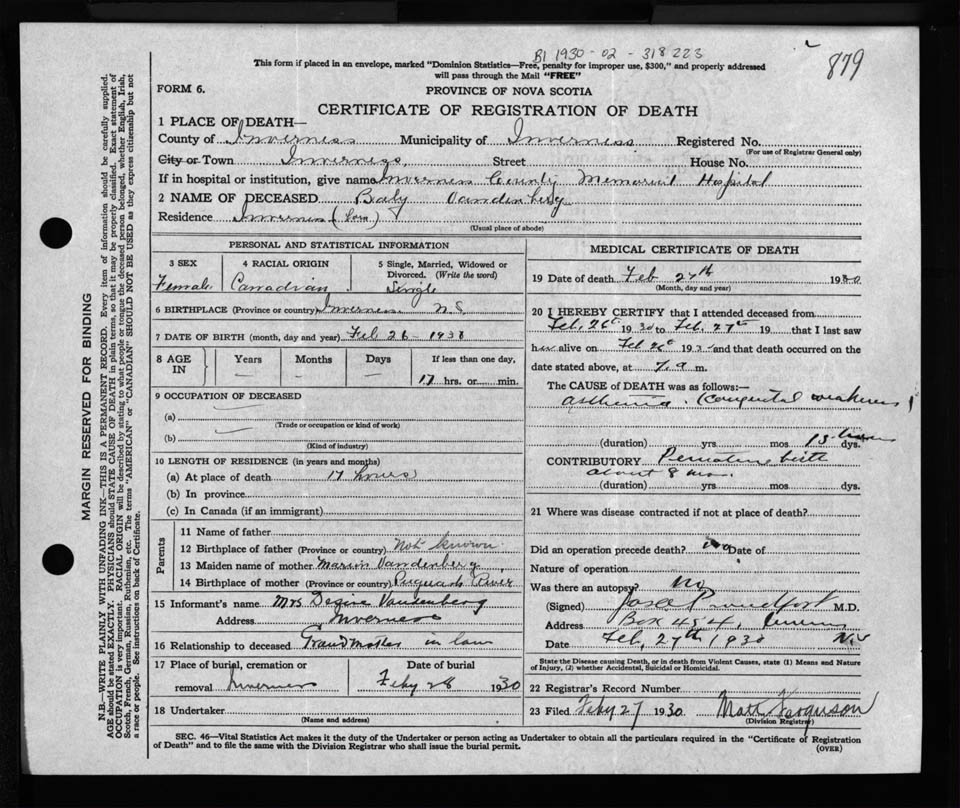 B1 1930 - 02 - 318223
879
This form if placed in an envelope, marked "Dominion Statistics—Free, penalty for improper use, $300," and properly addressed
will pass through the Mail "FREE"
FORM 6.
PROVINCE OF NOVA SCOTIA
CERTIFICATE OF REGISTRATION OF DEATH
1 PLACE OF DEATH—
County of Inverness Municipality of Inverness Registered No.
(For use of Registrar General only)
City or Town Inverness, Street House No.
If in hospital or institution, give name Inverness County Memorial Hospital
2 NAME OF DECEASED Baby Vandenberg
Residence Inverness
(Usual place of abode)
PERSONAL AND STATISTICAL INFORMATION
3 SEX
Female
4 RACIAL ORIGIN
Canadian
5 Single, Married, Widowed or
Divorced. (Write the word)
Single
6 BIRTHPLACE (Province or country) Inverness N.S.
7 DATE OF BIRTH (month, day and year) Feb 26 - 1930
8 AGE
IN
Years
Months
Days
If less than one day,
17 hrs. or min.
9 OCCUPATION OF DECEASED
(a)
(Trade or occupation or kind of work)
(b)
(Kind of industry)
10 LENGTH OF RESIDENCE (in years and months)
(a) At place of death 17 hours
(b) In province
(c) In Canada (if an immigrant)
Parents
11 Name of father
12 Birthplace of father (Province or country) Not known
13 Maiden name of mother Vandenberg
14 Birthplace of mother (Province or country) River
15 Informant's name Mrs Desire Vandenberg
Address Inverness
16 Relationship to deceased Grand Mother in law
17 Place of burial, cremation or
removal Inverness
Date of burial
Feby 28 1930
18 Undertaker
(Name and address)
MEDICAL CERTIFICATE OF DEATH
19 Date of death Feb 27th 1930
(Month, day and year)
20 I HEREBY CERTIFY that I attended deceased from
Feb. 26th 1930 to Feb. 27th 19 that I last saw
her alive on Feb 26th 193 and that death occurred on the
date stated above, at 7. a m.
The CAUSE of DEATH was as follows:—
Asthenia. (Congenital weakness)
(duration) yrs. mos hours dys.
CONTRIBUTORY Premature birth
about 8 mos.
(duration) yrs. mos. dys.
21 Where was disease contracted if not at place of death?
Did an operation precede death? no Date of
Nature of operation
Was there an autopsy? No
(Signed) M.D.
Address Box 454,
Date Feb. 27th, 1930
State the Disease causing Death, or in death from Violent Causes, state (1) Means and Nature
of Injury, (2) whether Accidental, Suicidal or Homicidal.
22 Registrar's Record Number
23 Filed Feby 27 1930 Matt Ferguson
(Division Registrar)
SEC. 46—Vital Statistics Act makes it the duty of the Undertaker or person acting as Undertaker to obtain all the particulars required in the "Certificate of Registration
of Death" and to file the same with the Division Registrar who shall issue the burial permit.
(OVER)
MARGIN RESERVED FOR BINDING
N.B.—WRITE PLAINLY WITH UNFADING INK—THIS IS A PERMANENT RECORD. Every item of information should be carefully supplied.
AGE should be stated EXACTLY. PHYSICIANS should STATE CAUSE OF DEATH in plain terms, so that it may be properly classified. Exact statement of
OCCUPATION is very important. RACIAL ORIGIN will be described by stating to what people or tongue the deceased person belonged, whether English, Irish,
Scotch, French, German, Russian, Ruthenian, etc. The terms "AMERICAN" or "CANADIAN" SHOULD NOT BE USED as they express citizenship but not
a race or people. See instructions on back of Certificate.